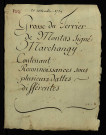 Grosse du Terrier
de Montas Signé
Marchangy
Contenant
Reconnoissances sous
plusieurs dattes
differentes